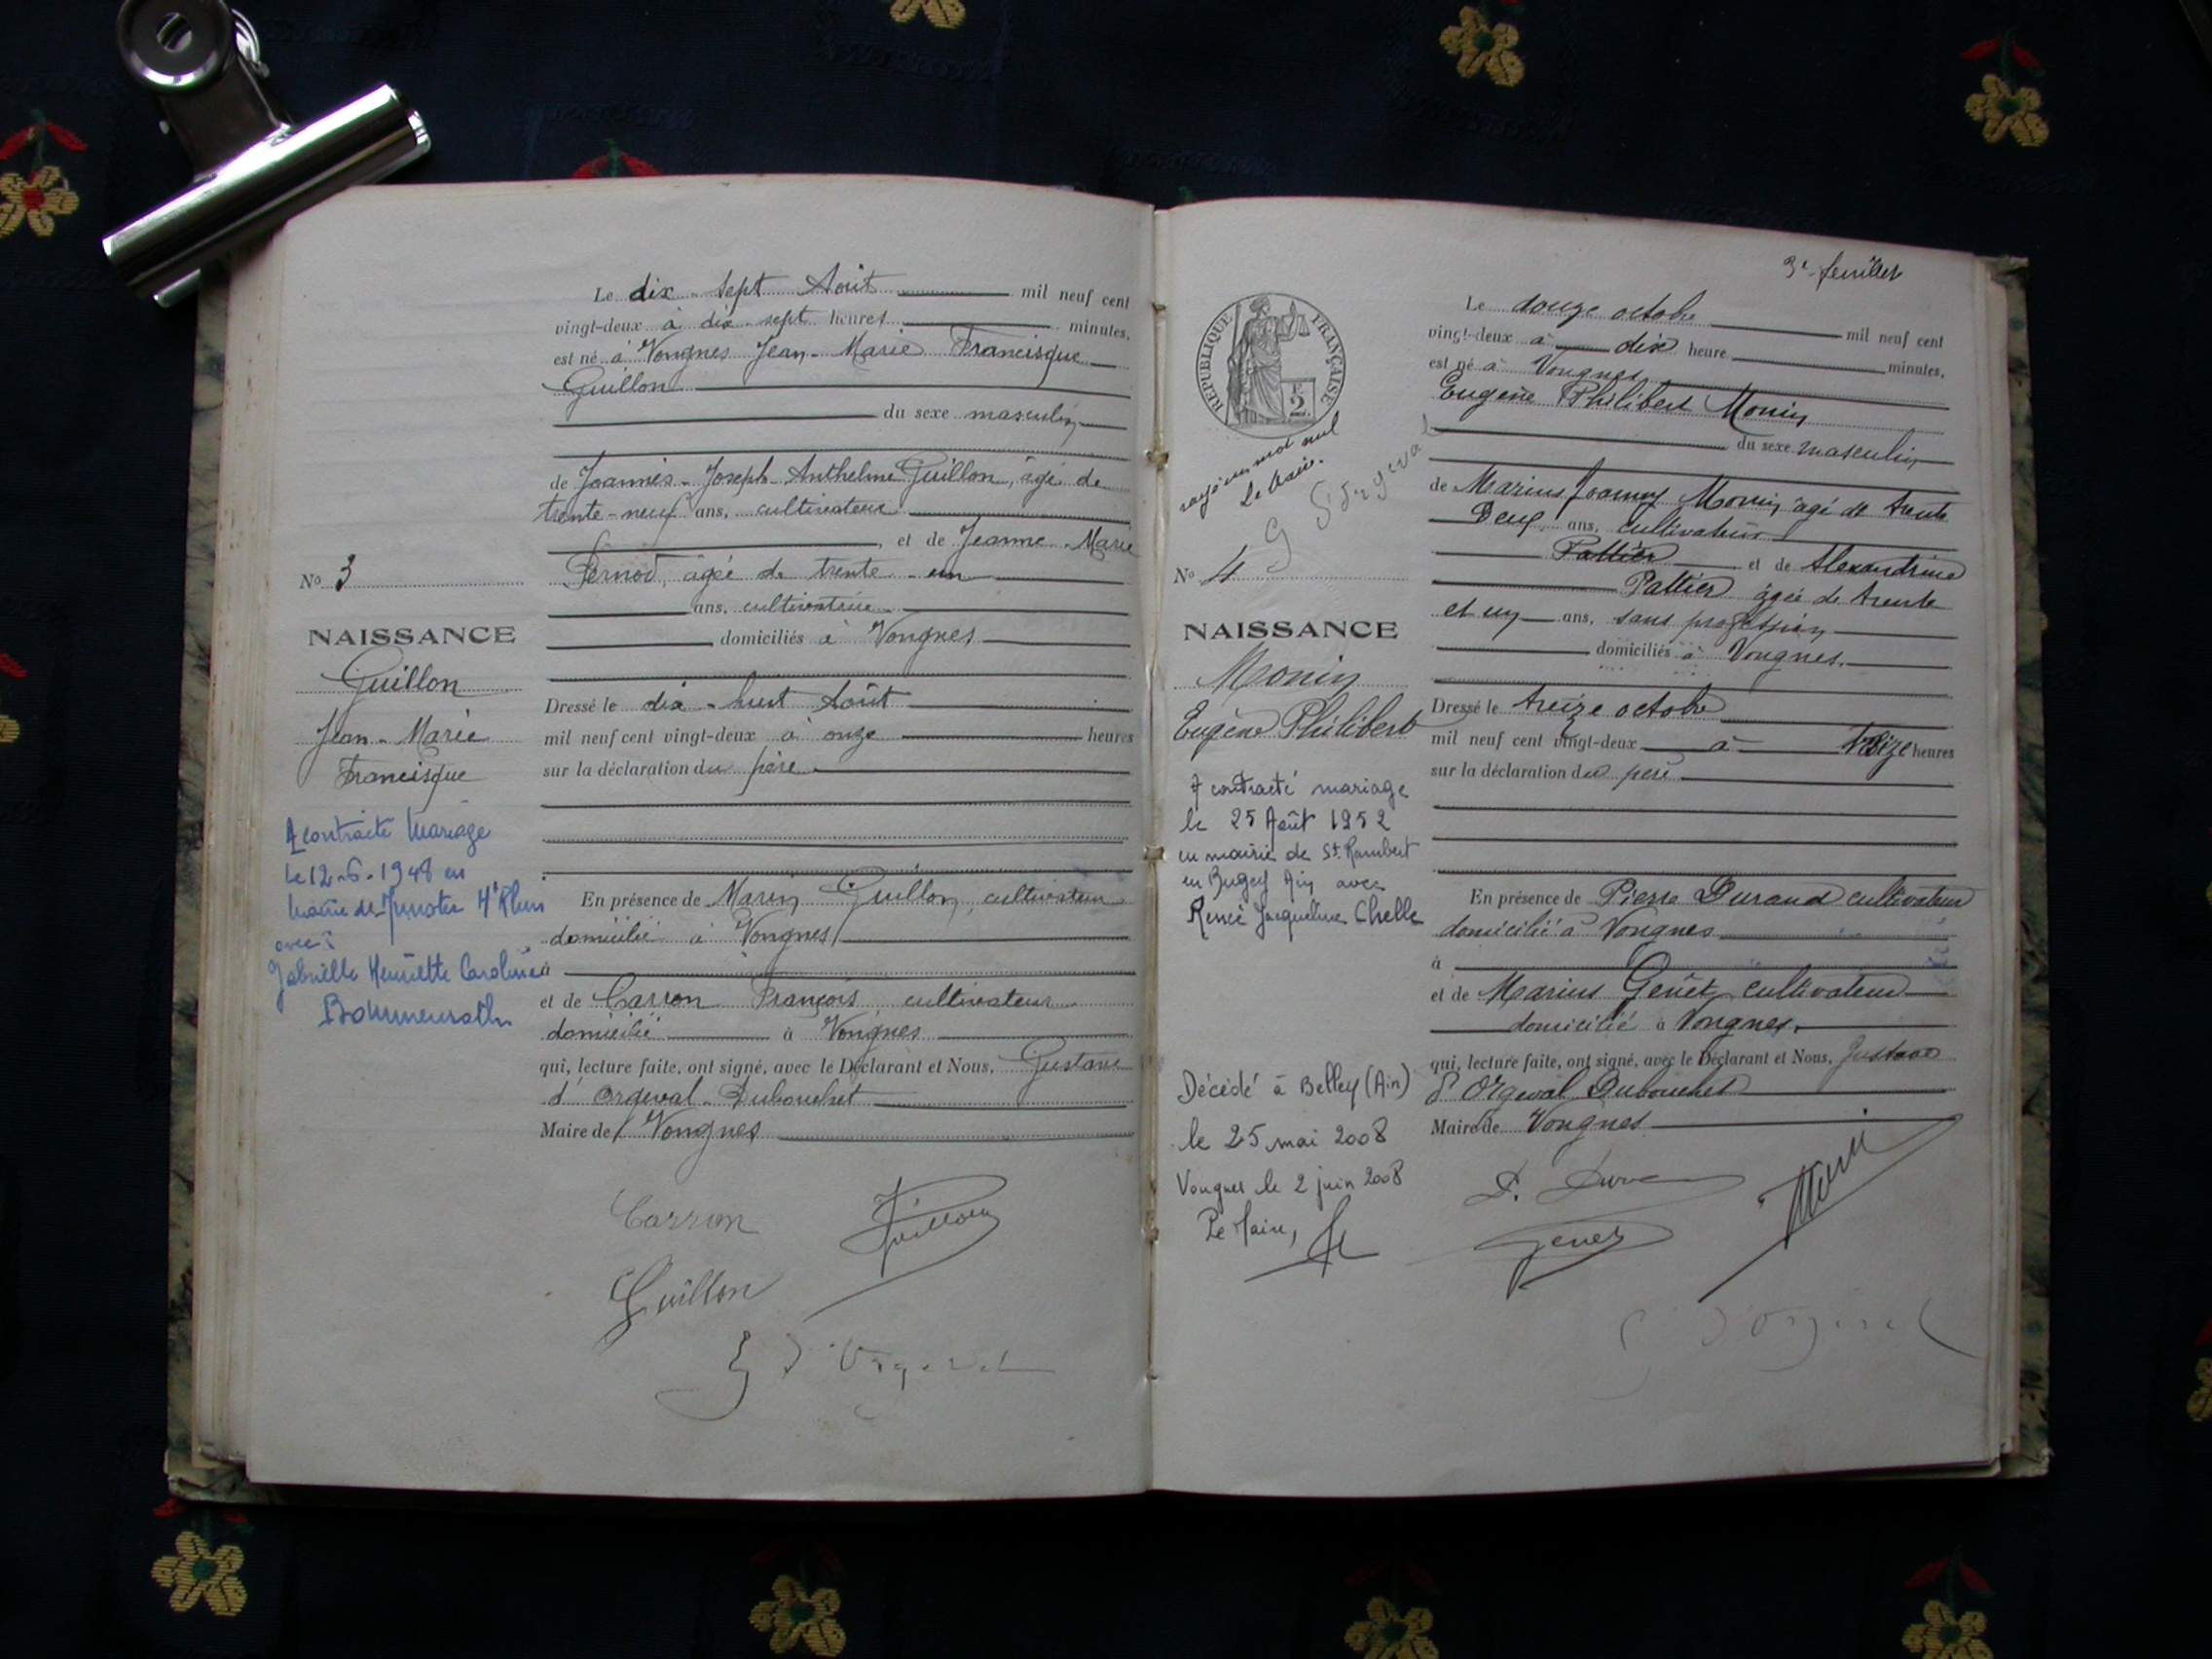 Le dix-sept Août mil neuf cent
vingt-deux à dix-sept heures minutes,
est né à Vongnes Jean-Marie Francisque
Guillon
du sexe masculin
de Joannès-Joseph-Anthelme Guillon, âgé de
trente-neuf ans, cultivateur
, et de Jeanne-Marie
Pernod, âgée de trente-un
ans, cultivatrice
domiciliés à Vongnes
No 3
NAISSANCE
Guillon
Jean-Marie
Francisque
A contracté Mariage
le 12-6-1948 en
Mairie de Munster Ht Rhin
avec:
Gabrielle Henriette Caroline
Dressé le dix-huit Août
mil neuf cent vingt-deux à onze heures
sur la déclaration du père
En présence de Marin Guillon, cultivateur
domicilié à Vongnes
à
et de Carron François cultivateur
domicilié à Vongnes
qui, lecture faite, ont signé, avec le Déclarant et Nous, Gustave
d'Orgeval-Dubouchet
Maire de Vongnes
Carron
Guillon
Guillon
G d'Orgeval
3e feuillet
REPUBLIQUE FRANÇAISE
2 F
rayé un mot nul
Le Maire.
G d'Orgeval
No 4
NAISSANCE
Monin
Eugène Philibert
A contracté mariage
le 25 Août 1952
en mairie de St Rambert
en Bugey Ain avec
Renée Jacqueline Chelle
Décédé à Belley (Ain)
le 25 mai 2008
Vongnes le 2 juin 2008
Le Maire,
Le douze octobre mil neuf cent
vingt-deux à dix heure minutes,
est né à Vongnes
Eugène Philibert Monin
du sexe masculin
de Marius Joanny Monin âgé de trente
Deux ans, cultivateur
Pattier et de Alexandrine
Pattier âgée de trente
et un ans, sans profession
domiciliés à Vongnes.
Dressé le treize octobre
mil neuf cent vingt-deux à treize heures
sur la déclaration du père
En présence de Pierre Durand cultivateur
domicilié à Vongnes
à
et de Marius Genêt cultivateur
domicilié à Vongnes.
qui, lecture faite, ont signé, avec le Déclarant et Nous, Gustave
d'Orgeval Dubouchet
Maire de Vongnes
Monin
Genet
G d'Orgeval